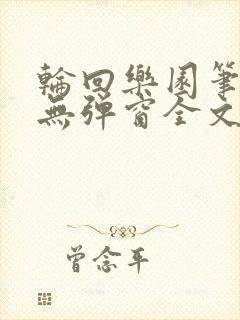 輪回樂園筆
無彈窗全文
曾念平